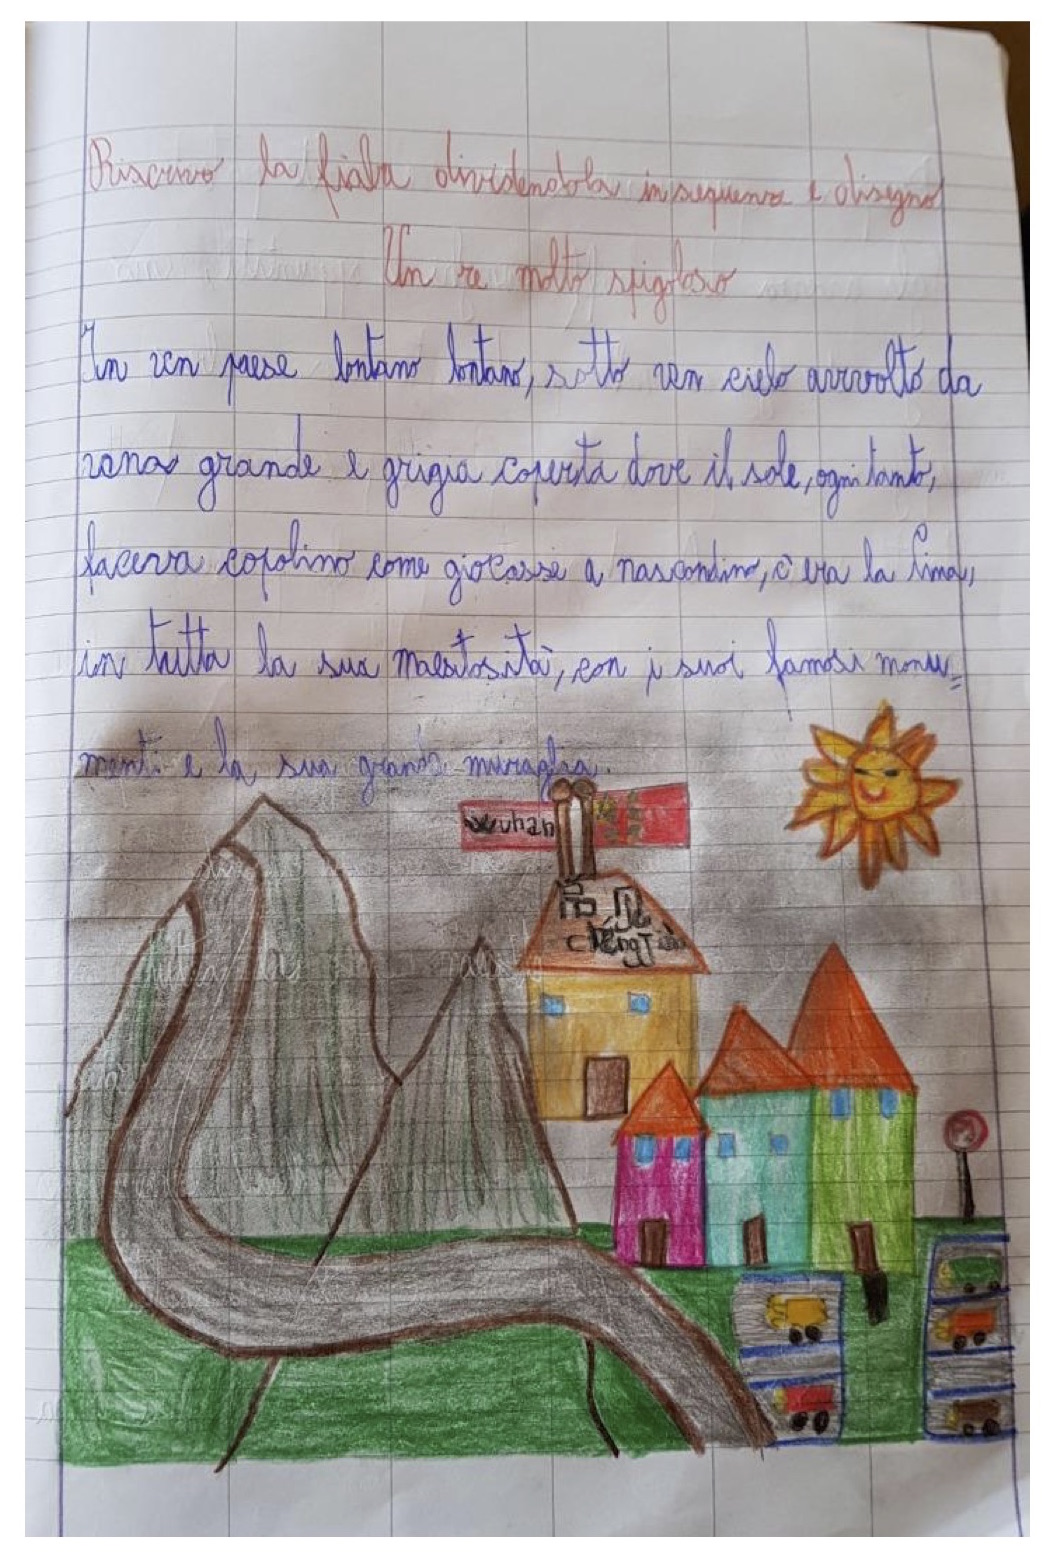 Riscrivo la fiaba dividendola in sequenze e disegno
Un re molto spigoloso
In un paese lontano lontano, sotto un cielo avvolto da
una grande e grigia coperta dove il sole, ogni tanto,
faceva capolino come giocasse a nascondino, c'era la Cina,
in tutta la sua maestosità, con i suoi famosi monu=
menti e la sua grande muraglia.
Wuhan